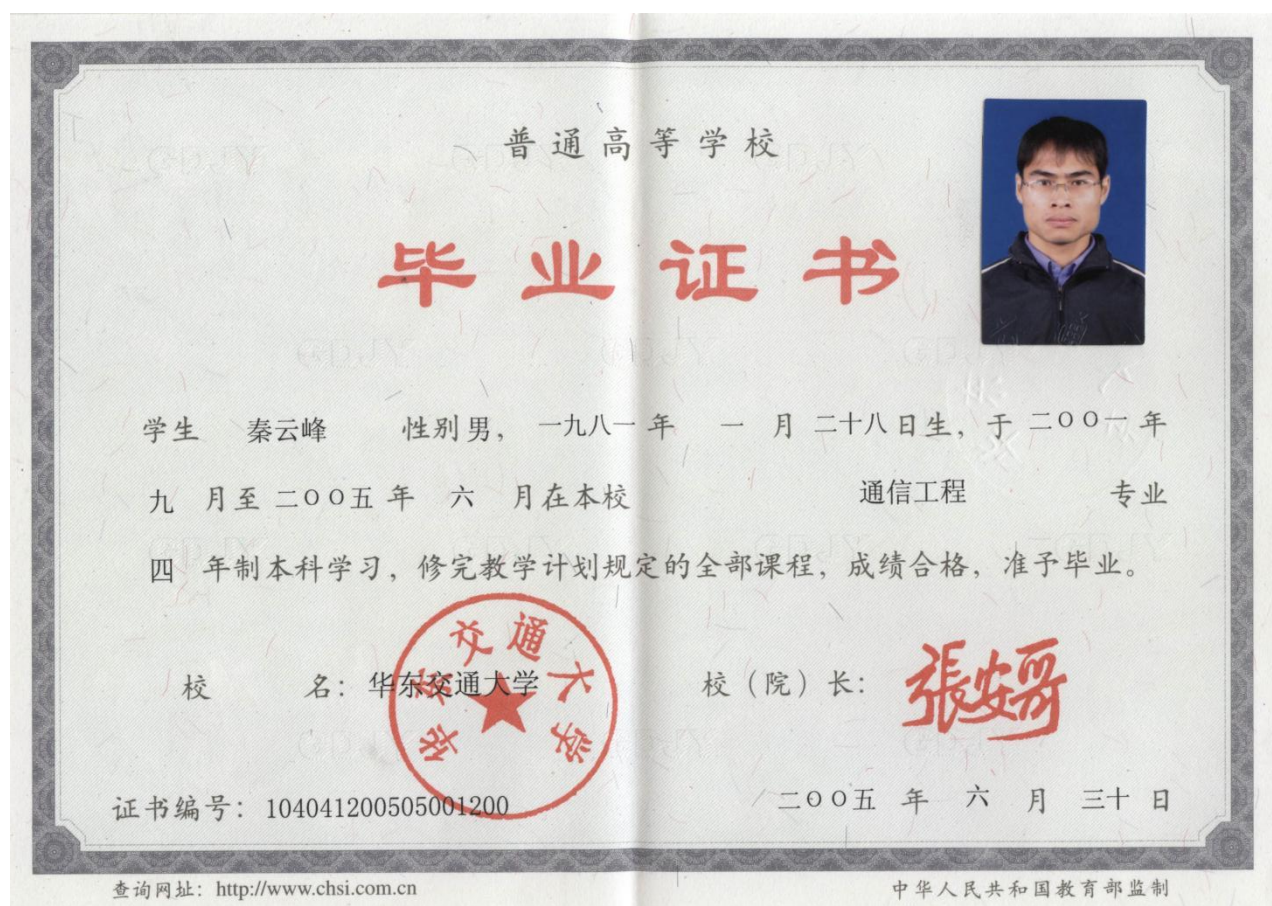 普通高等学校
毕业证书
学生 秦云峰 性别 男， 一九八一 年 一 月 二十八 日生，于 二〇〇一 年
九 月至 二〇〇五 年 六 月在本校 通信工程 专业
四 年制本科学习，修完教学计划规定的全部课程，成绩合格，准予毕业。
华东交通大学
校 名：华东交通大学 校（院）长：
证书编号：104041200505001200 二〇〇五 年 六 月 三十 日
查询网址：http://www.chsi.com.cn 中华人民共和国教育部监制